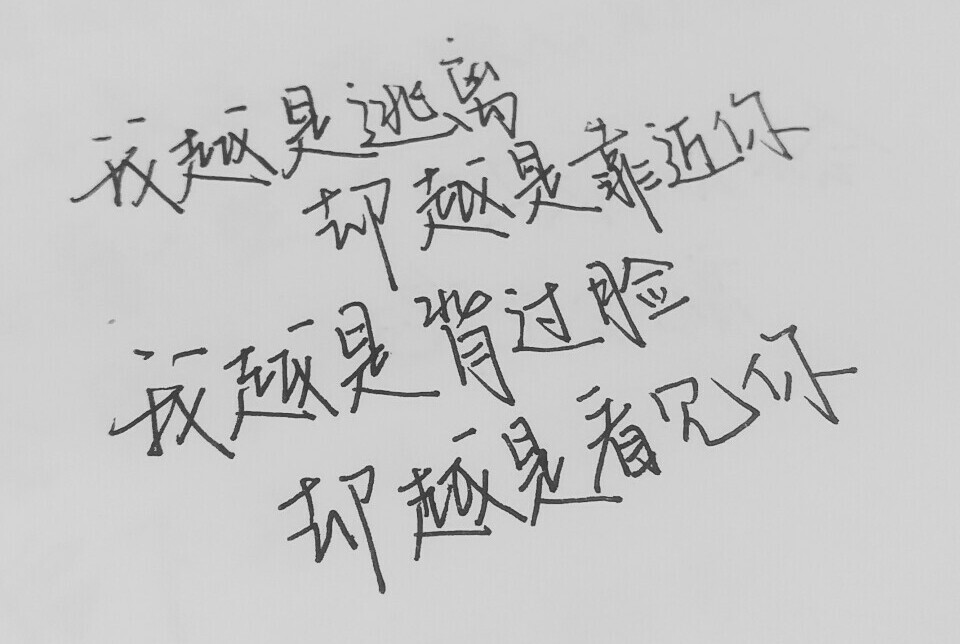 我越是逃离
却越是靠近你
我越是背过脸
却越是看见你